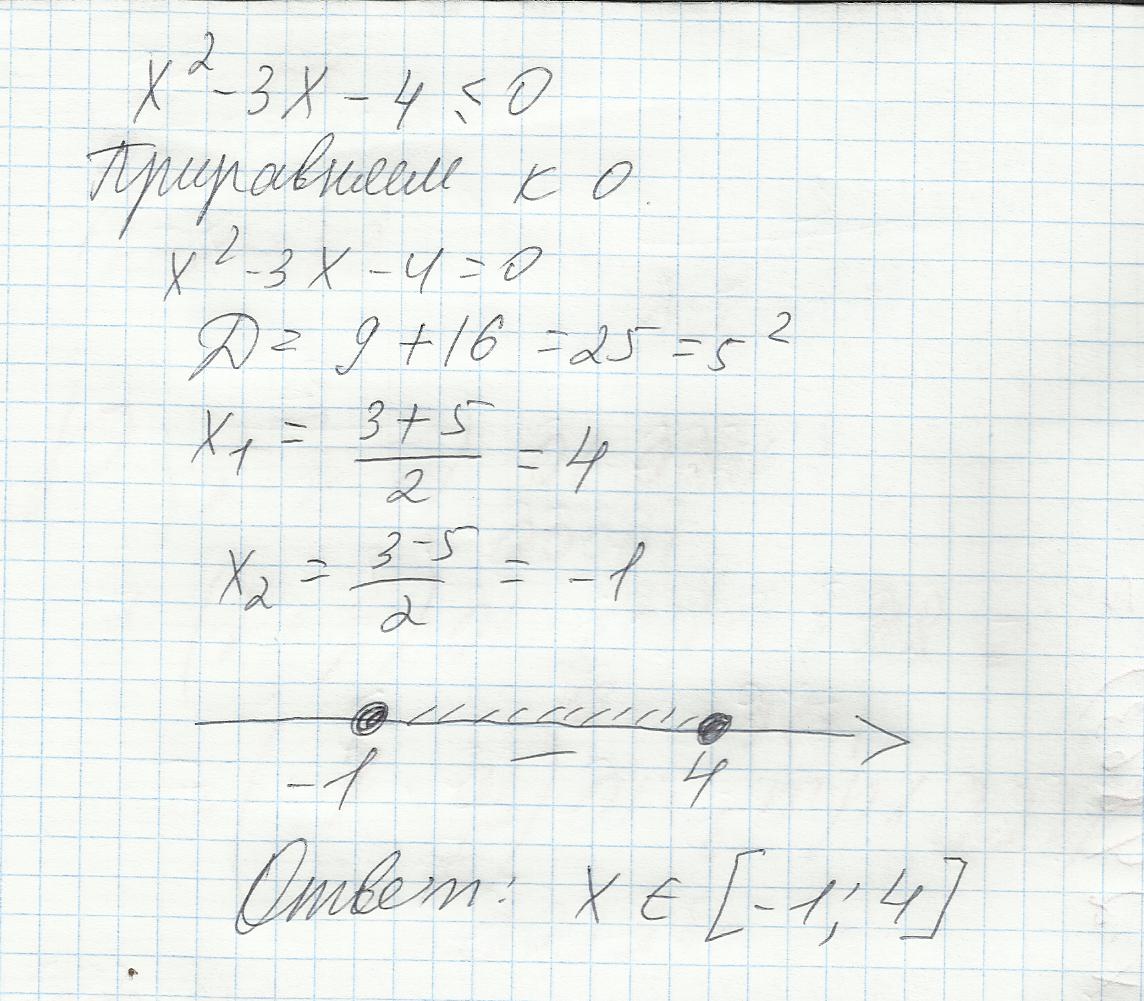 x² - 3x - 4 ≤ 0
Приравняем к 0.
x² - 3x - 4 = 0
Д = 9 + 16 = 25 = 5²
x₁ = (3 + 5)/2 = 4
x₂ = (3 - 5)/2 = -1
-1 – 4
Ответ: x ∈ [-1; 4]